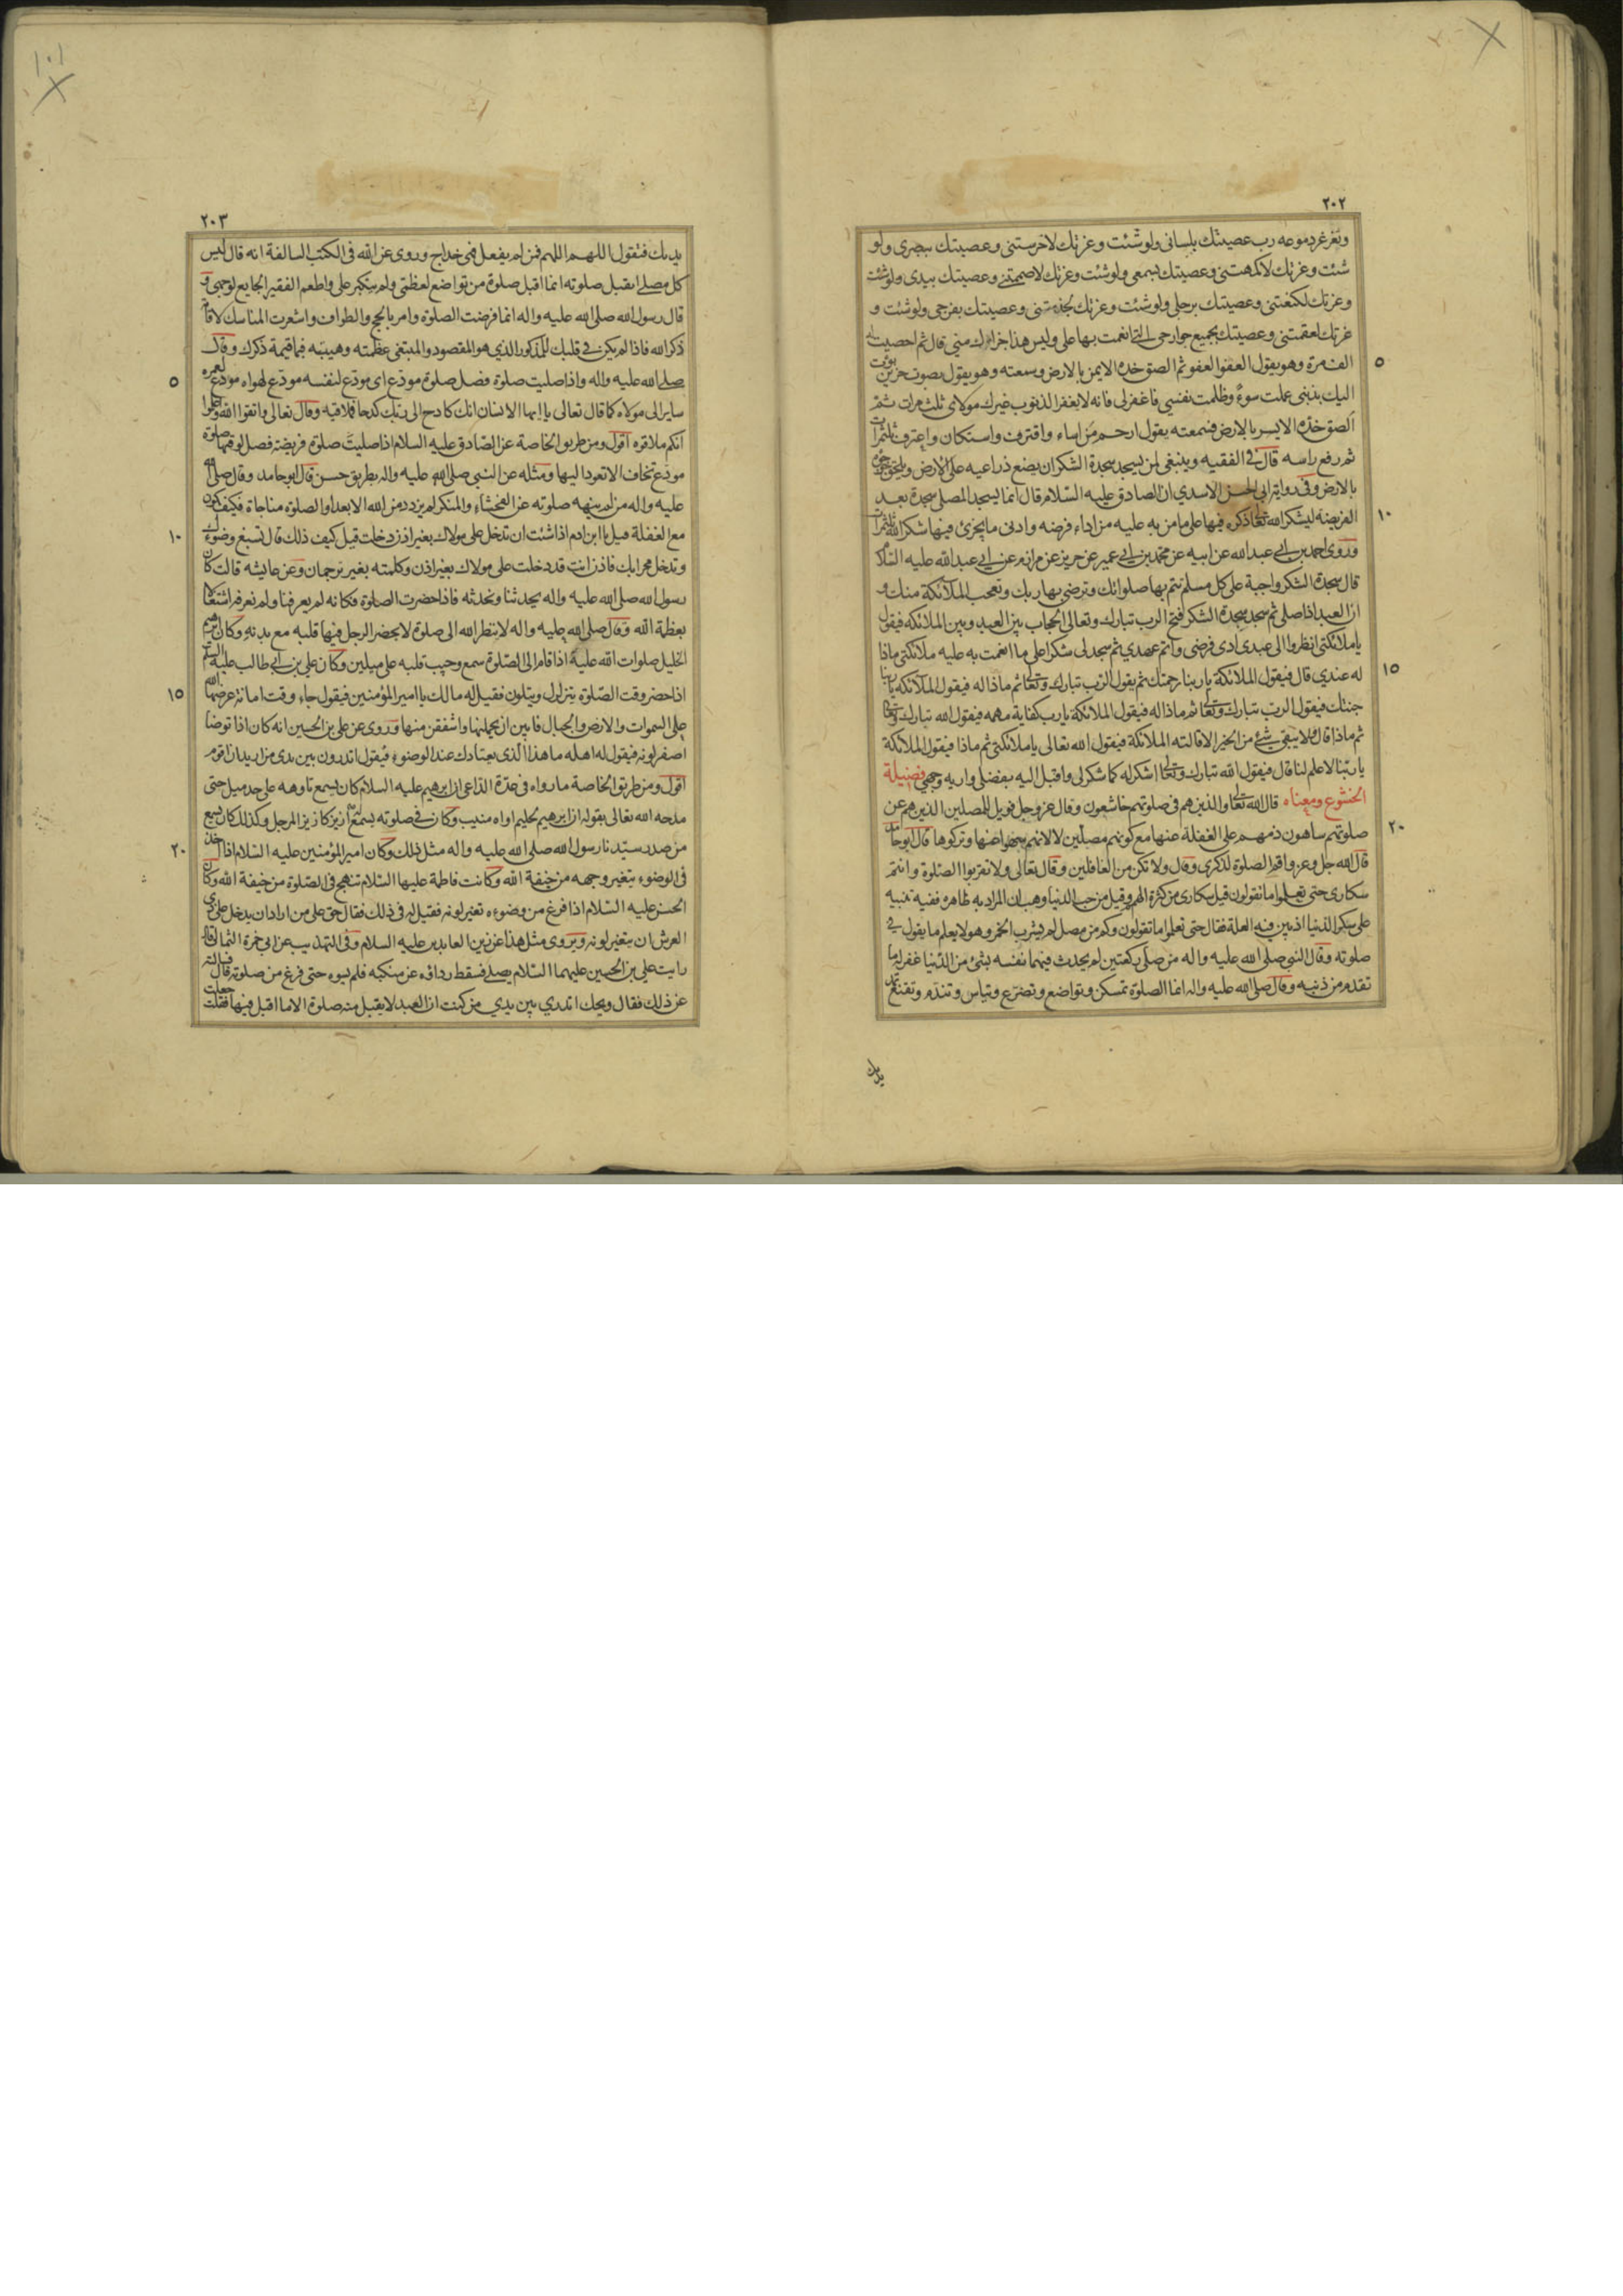 ٢٠٢
وتغرغر دموعه رب عصيتك بلسانى ولو شئت وعزتك لاخرستنى وعصيتك ببصرى ولو
شئت وعزتك لاكمهتنى وعصيتك بسمعى ولو شئت وعزتك لاصممتنى وعصيتك بيدى ولو شئت
وعزتك لكنعتنى وعصيتك برجلى ولو شئت وعزتك لجذمتنى وعصيتك بفرجى ولو شئت و
عزتك لعقمتنى وعصيتك بجميع جوارحى التى انعمت بها على وليس هذا جزاؤك منى قال ثم احصيت له
٥
الف مرة وهو يقول العفو العفو ثم الصق خده الايمن بالارض وسمعته وهو يقول بصوت حزين بؤت
اليك بذنبى عملت سوءً وظلمت نفسى فاغفر لى فانه لا يغفر الذنوب غيرك مولاى ثلث مرات ثم
الصق خده الايسر بالارض فسمعته يقول ارحم من اساء واقترف واستكان واعترف ثلثمرات
ثم رفع راسه قال فى الفقيه وينبغى لمن يسجد سجدة الشكر ان يضع ذراعيه على الارض ويلصق جؤجؤه
بالارض وفى رواية ابى الحسن الاسدي ان الصادق عليه السلام قال انما يسجد المصلى سجدة بعد
١٠
الفريضة ليشكر الله تعالى ذكره فيها على ما من به عليه من اداء فرضه وادنى ما يجزئ فيها شكرا لله ثلثمرات
وروى احمد بن ابى عبد الله عن ابيه عن محمد بن ابى عمير عن حريز عن مرازم عن ابى عبد الله عليه السلام
قال سجدة الشكر واجبة على كل مسلم تتم بها صلواتك وترضى بها ربك وتعجب الملائكة منك و
ان العبد اذا صلى ثم سجد سجدة الشكر فتح الرب تبارك وتعالى الحجاب بين العبد وبين الملائكه فيقول
يا ملائكتى انظروا الى عبدى ادى فرضى واتم عهدي ثم سجد لى شكرا على ما انعمت به عليه ملائكتى ماذا
١٥
له عندي قال فيقول الملائكة يا ربنا رحمتك ثم يقول الرب تبارك وتعالى ثم ماذا له فيقول الملائكه يا ربنا
جنتك فيقول الرب تبارك وتعالى ثم ماذا له فيقول الملائكة يا رب كفاية مهمه فيقول الله تبارك وتعالى
ثم ماذا قال فلا يبقى شئ من الخير الا قالته الملائكة فيقول الله تعالى يا ملائكتى ثم ماذا فيقول الملائكة
يا ربنا لا علم لنا قال فيقول الله تبارك وتعالى اشكر له كما شكر لى واقبل اليه بفضلى واريه وجهى فضيلة
الخشوع ومعناه قال الله تعالى والذين هم فى صلوتهم خاشعون وقال عز وجل فويل للمصلين الذين هم عن
٢٠
صلوتهم ساهون ذمهم على الغفلة عنها مع كونهم مصلين لا لانهم تركوها قال ابو حامد
قال الله جل وعز واقم الصلوة لذكرى وقال ولا تكن من الغافلين وقال تعالى ولا تقربوا الصلوة وانتم
سكارى حتى تعلموا ما تقولون قيل سكارى من كثرة الهم وقيل من حب الدنيا وهب ان المراد به ظاهره ففيه تنبيه
على سكر الدنيا اذ بين فيه العلة فقال حتى تعلموا ما تقولون وكم من مصل لم يشرب الخمر وهو لا يعلم ما يقول فى
صلوته وقال النبى صلى الله عليه واله من صلى ركعتين لم يحدث فيهما نفسه بشئ من الدنيا غفر له ما
تقدم من ذنبه وقال صلى الله عليه واله انما الصلوة تمسكن وتواضع وتضرع وتباس وتندم وتقنع تمد
يديك
٢٠٣
يديك فتقول اللهم اللهم فمن لم يفعل فهى خداج وروى عن الله فى الكتب السالفة انه قال ليس
كل مصل اتقبل صلوته انما اقبل صلوة من تواضع لعظمتى ولم يتكبر على واطعم الفقير الجايع لوجهى و
قال رسول الله صلى الله عليه واله انما فرضت الصلوة وامر بالحج والطواف واشعرت المناسك لاقامة
ذكر الله فاذا لم يكن فى قلبك للمذكور الذي هو المقصود والمبتغى عظمته وهيبته فما قيمة ذكرك وقال
٥
صلى الله عليه واله واذا صليت صلوة فصل صلوة مودع اى مودع لنفسه مودع لهواه مودع لعمره
ساير الى مولاه كما قال تعالى يا ايها الانسان انك كادح الى ربك كدحا فملاقيه وقال تعالى واتقوا الله واعلموا
انكم ملاقوه اقول ومن طريق الخاصة عن الصادق عليه السلام اذا صليت صلوة فريضة فصل لوقتها صلوة
مودع تخاف الا تعود اليها ومثله عن النبى صلى الله عليه واله بطريق حسن قال ابو حامد وقال صلى الله
عليه واله من لم ينهه صلوته عن الفحشاء والمنكر لم يزدد من الله الا بعدا والصلوة مناجاة فكيف تكون
١٠
مع الغفلة قيل يا ابن ادم اذا شئت ان تدخل على مولاك بغير اذن دخلت قيل كيف ذلك قال تسبغ وضوءك
وتدخل محرابك فاذن انت قد دخلت على مولاك بغير اذن وكلمته بغير ترجمان وعن عايشه قالت كان
رسول الله صلى الله عليه واله يحدثنا ونحدثه فاذا حضرت الصلوة فكانه لم يعرفنا ولم نعرفه اشتغالا
بعظمة الله وقال صلى الله عليه واله لا ينظر الله الى صلوة لا يحضر الرجل فيها قلبه مع بدنه وكان ابرهيم
الخليل صلوات الله عليه اذا قام الى الصلوة سمع وجيب قلبه على ميلين وكان على بن ابى طالب عليه السلم
١٥
اذا حضر وقت الصلوة يتزلزل ويتلون فقيل له مالك يا امير المؤمنين فيقول جاء وقت امانة عرضها الله
على السموات والارض والجبال فابين ان يحملنها واشفقن منها وروى عن على بن الحسين انه كان اذا توضأ
اصفر لونه فيقول له اهله ما هذا الذى يعتادك عند الوضوء فيقول اتدرون بين يدى من اريد ان اقوم
اقول ومن طريق الخاصة ما رواه فى عدة الداعى ان ابرهيم عليه السلام كان يسمع تاوهه على حد ميل حتى
مدحه الله تعالى بقوله ان ابرهيم لحليم اواه منيب وكان فى صلوته يسمع له ازيز كازيز المرجل وكذلك كان يسمع
٢٠
من صدر سيدنا رسول الله صلى الله عليه واله مثل ذلك وكان امير المؤمنين عليه السلام اذا اخذ
فى الوضوء يتغير وجهه من خيفة الله وكانت فاطمة عليها السلام تنهج فى الصلوة من خيفة الله وكان
الحسن عليه السلام اذا فرغ من وضوءه تغير لونه فقيل له فى ذلك فقال حق على من اراد ان يدخل على ذى
العرش ان يتغير لونه ويروى مثل هذا عن زين العابدين عليه السلام وفى التهذيب عن ابى حمزة الثمالى قال
رايت على بن الحسين عليهما السلام يصلى فسقط رداؤه عن منكبه فلم يسوه حتى فرغ من صلوته قال فسالته
عن ذلك فقال ويحك اتدري بين يدي من كنت ان العبد لا يقبل منه صلوة الا ما اقبل فيها فقلت جعلت